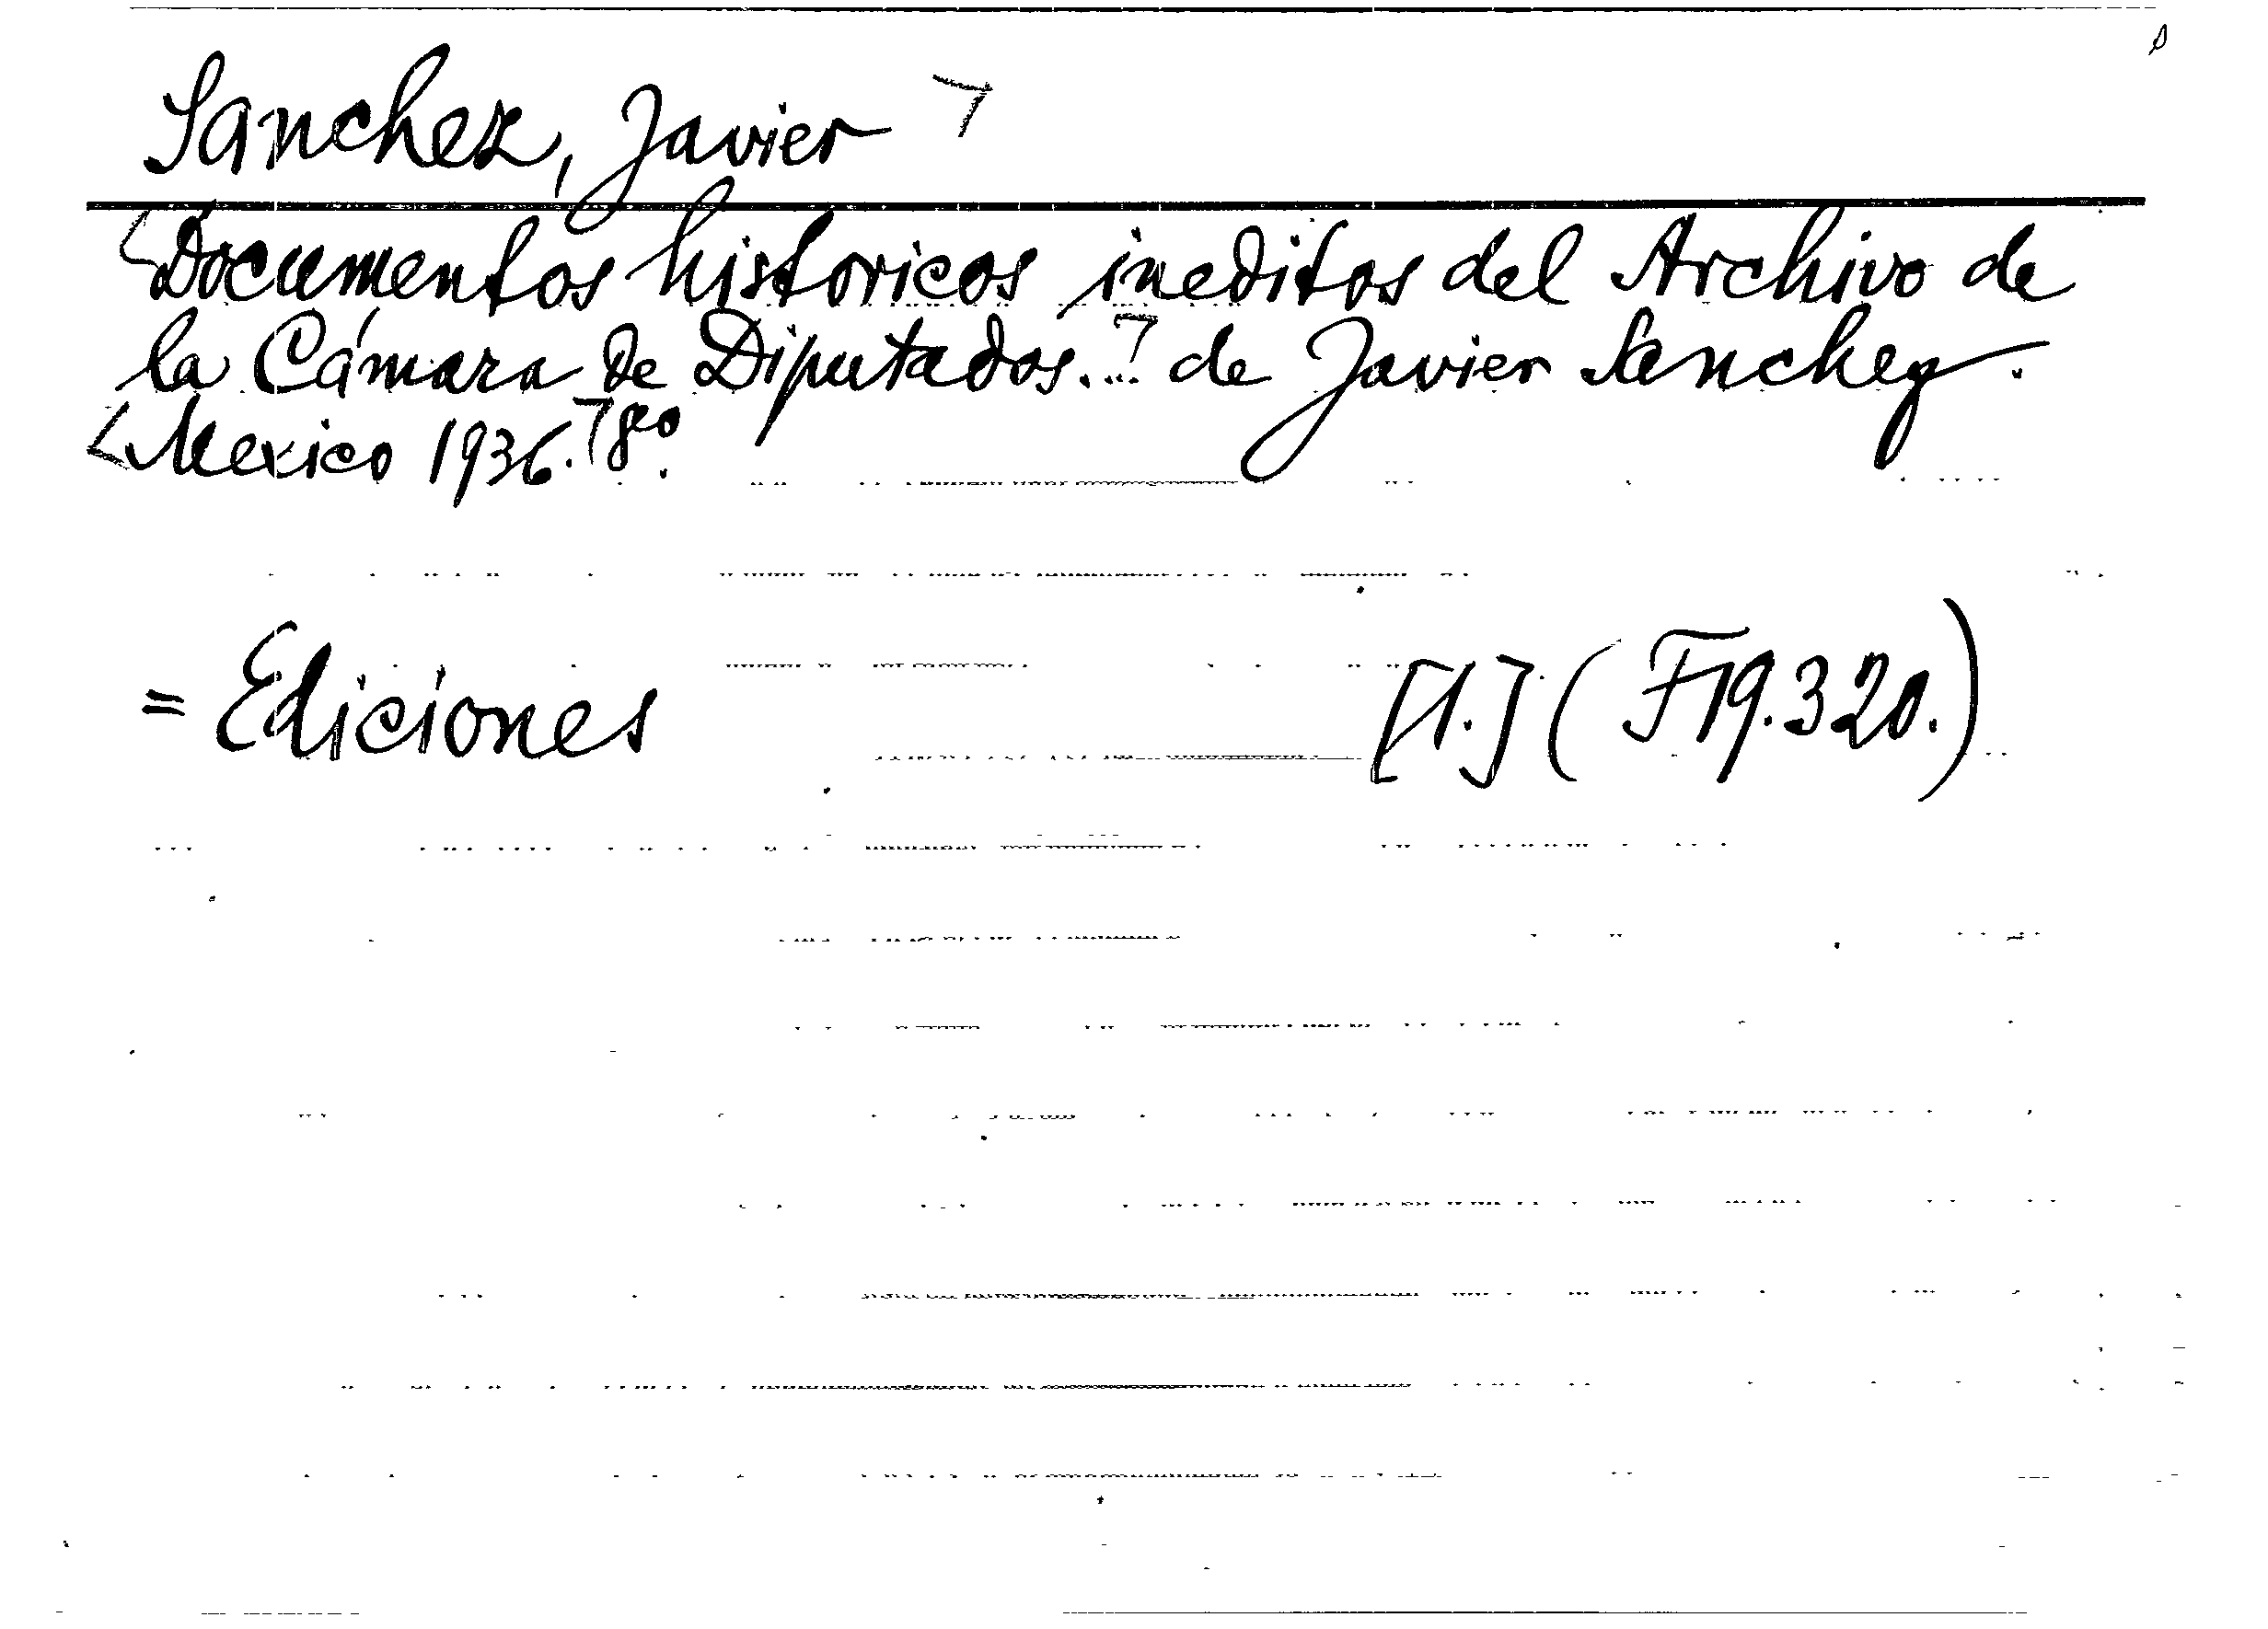 Sanchez, Javier
Documentos historicos ineditos del Archivo de
la Cámara de Diputados... de Javier Sanchez.
Mexico 1936. 8eo.
= Ediciones [1.] (F19.320.)